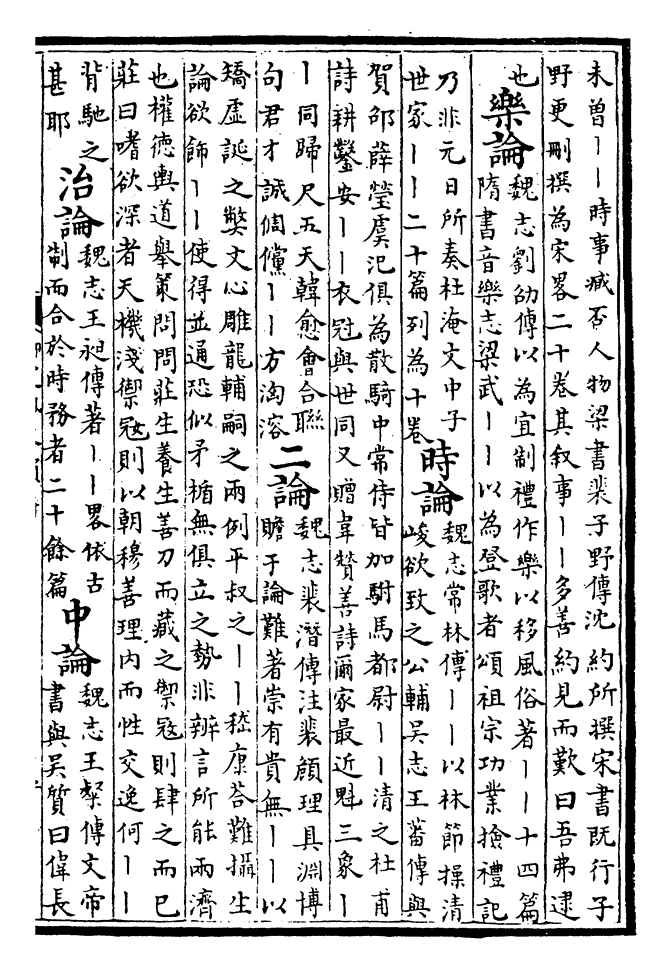 未曾丨丨時事臧否人物梁書裴子野傳沈約所撰宋書既行子
野更刪撰為宋畧二十卷其叙事丨丨多善約見而歎曰吾弗逮
也
樂論
魏志劉劭傳以為宜制禮作樂以移風俗著丨丨十四篇
隋書音樂志梁武丨丨以為登歌者頌祖宗功業撿禮記
乃非元日所奏杜淹文中子
世家丨丨二十篇列為十卷
時論
魏志常林傳丨丨以林節操清
峻欲致之公輔吳志王蕃傳與
賀邵薛瑩虞汜俱為散騎中常侍皆加駙馬都尉丨丨清之杜甫
詩耕鑿安丨丨衣冠與世同又贈韋贊善詩爾家最近魁三象丨
丨同歸尺五天韓愈會合聯
句君才誠倜儻丨丨方洶溶
二論
魏志裴潛傳注裴頠理具淵博
贍于論難著崇有貴無丨丨以
矯虛誕之獘文心雕龍輔嗣之兩例平叔之丨丨嵇康荅難攝生
論欲飾丨丨使得並通恐似矛楯無俱立之勢非辨言所能兩濟
也權德輿道舉策問問莊生養生善刀而藏之禦寇則肆之而已
莊曰嗜欲深者天機淺禦寇則以朝穆善理内而性交逸何丨丨
背馳之
甚耶
治論
魏志王昶傳著丨丨畧依古
制而合於時務者二十餘篇
中論
魏志王粲傳文帝
書與吳質曰偉長